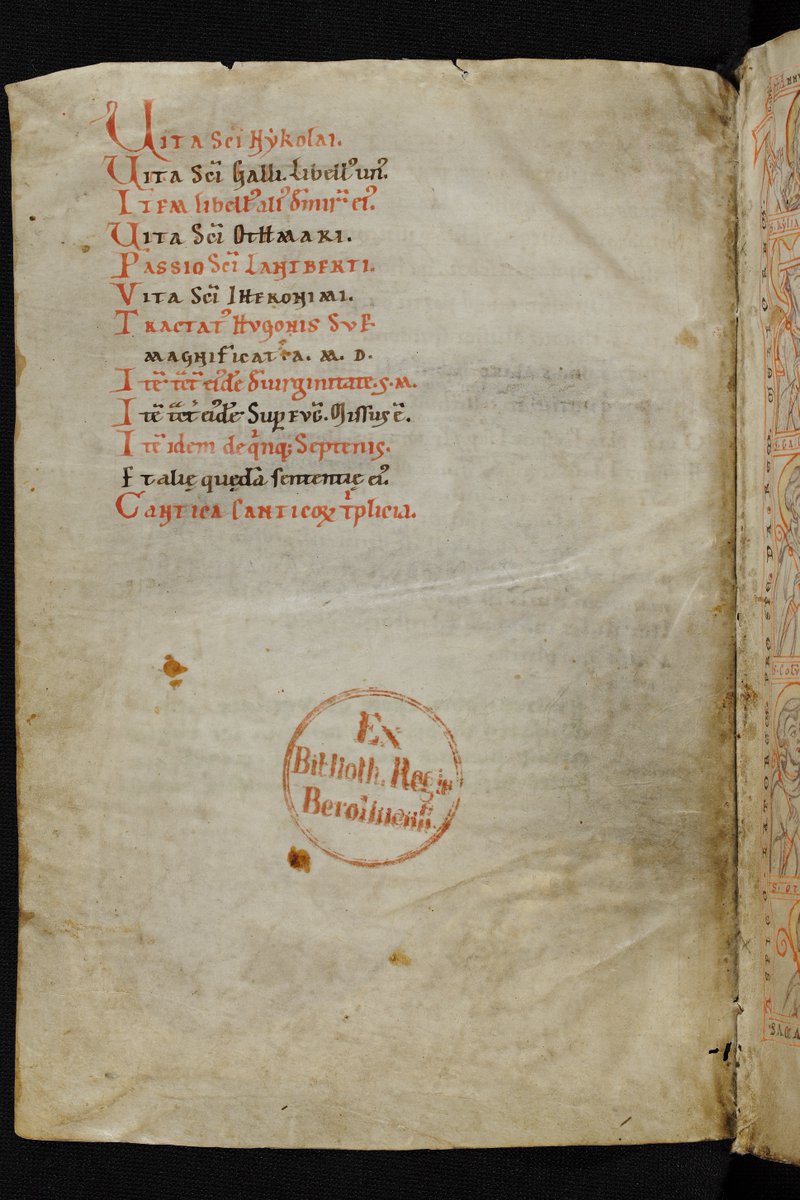 Uita Sc̄i Nẏkolai.
Uita Sc̄i Galli. Libellꝰ unꝰ.
Item libellꝰ aliꝰ
Uita Sc̄i Othmari.
Passio Sc̄i Lantberti.
Vita Sc̄i Iheronimi.
Tractatꝰ Hugonis Sup̄
magnificat a. m. d.
Itē eiꝰdē uirginitate. s. m.
Itē eiꝰdē Suꝑ euḡ. Missus ē.
Itē idem de qͥnqꝫ Septenis.
Et alię quędā sententię eiꝰ.
Cantica Canticoꝝ tͥplicia.
Ex
Biblioth. Regia
Berolinenſi.